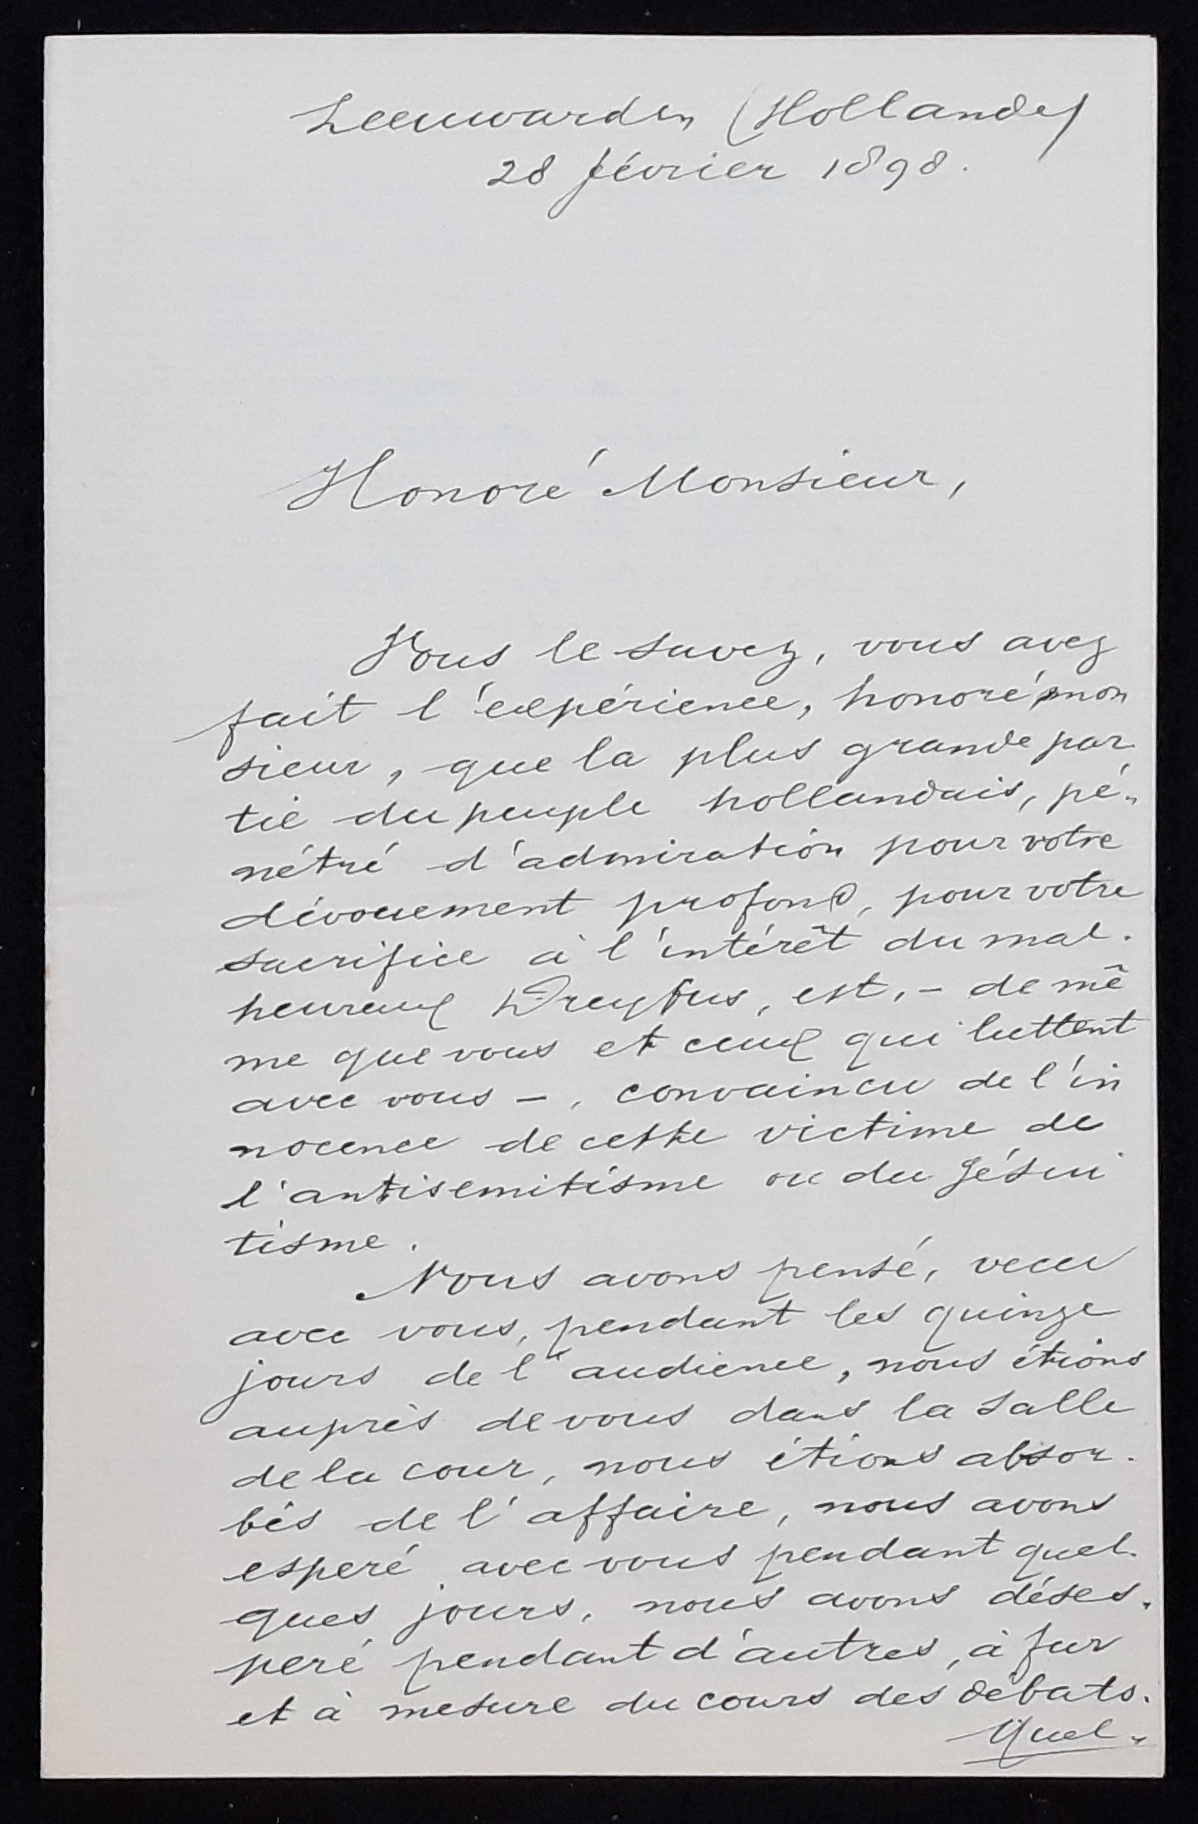 Leeuwarden (Hollande)
28 février 1898.
Honoré Monsieur,
Vous le savez, vous avez
fait l'expérience, honoré mon
sieur, que la plus grande par
tie du peuple hollandais, pé-
nétré d'admiration pour votre
dévouement profond, pour votre
sacrifice à l'intérêt du mal-
heureux Dreyfus, est, - de mê
me que vous et ceux qui luttent
avec vous -, convaincu de l'in
nocence de cette victime de
l'antisemitisme ou du Jésui
tisme.
Nous avons pensé, vecu
avec vous, pendant les quinze
jours de l'audience, nous étions
auprès de vous dans la salle
de la cour, nous étions absor-
bés de l'affaire, nous avons
esperé avec vous pendant quel-
ques jours, nous avons déses-
peré pendant d'autres, à fur
et à mesure du cours des débats.
Quel-